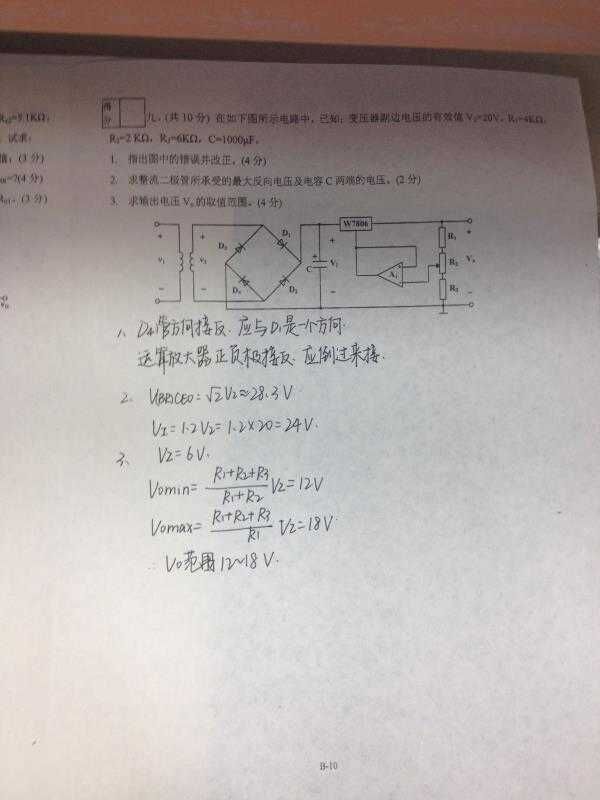 R₀₂=5.1KΩ;
试求:
值;(3 分)
=?(4 分)
(3 分)
得
分
九、(共 10 分) 在如下图所示电路中,已知:变压器副边电压的有效值 V₂=20V, R₁=4KΩ,
R₂=2 KΩ, R₃=6KΩ, C=1000μF。
1. 指出图中的错误并改正。(4 分)
2. 求整流二极管所承受的最大反向电压及电容 C 两端的电压。(2 分)
3. 求输出电压 Vₒ的取值范围。(4 分)
W7806
+ + D₃ D₁ + + R₁ +
v₁ v₂ C Vᵢ A₁ R₂ Vₒ
− − D₄ D₂ − R₃ −
1、D4管方向接反.应与D1是一个方向.
运算放大器正负极接反.应倒过来接.
2. UBRCEO=√2V2≈28.3V
VI=1.2V2=1.2×20=24V.
3、 VZ=6V.
Vomin= R1+R2+R3/R1+R2 VZ=12V
Vomax= R1+R2+R3/R1 VZ=18V.
∴ Vo范围12~18V.
B-10